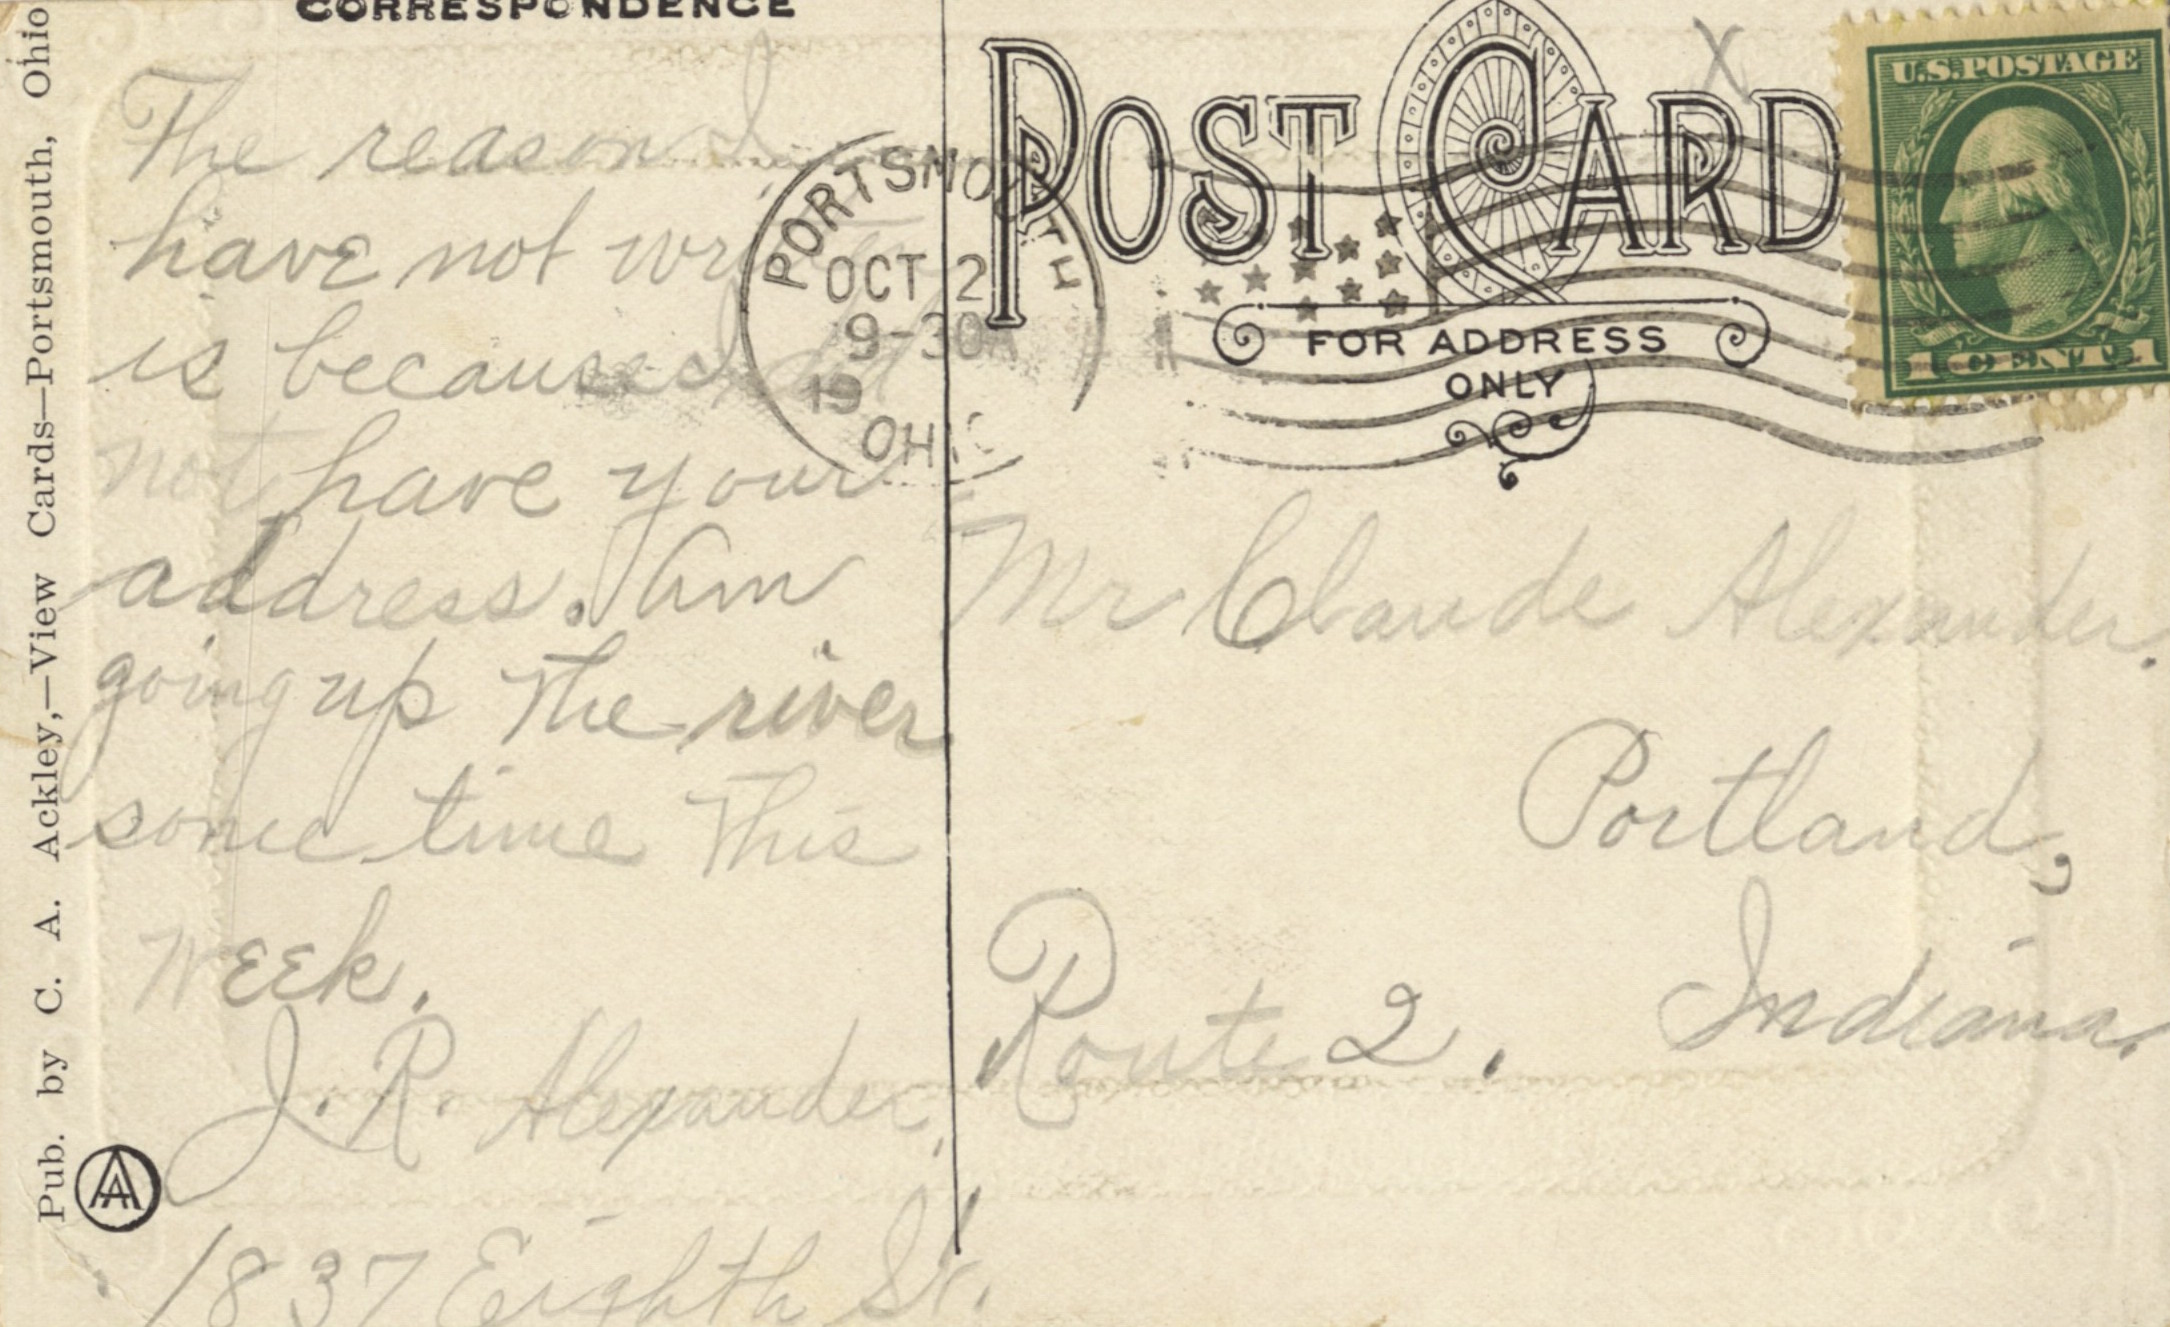 CORRESPONDENCE
The reason I
have not written
is because I did
not have your
address. Am
going up the river
some time this
week.
J. R. Alexander,
1837 Eighth St.
Pub. by C. A. Ackley,—View Cards—Portsmouth, Ohio
PORTSMOUTH
OCT 2
9-30A
19
OHIO
POST CARD
FOR ADDRESS
ONLY
X
U.S. POSTAGE
1 CENT 1
Mr Claude Alexander.
Portland,
Indiana.
Route 2.